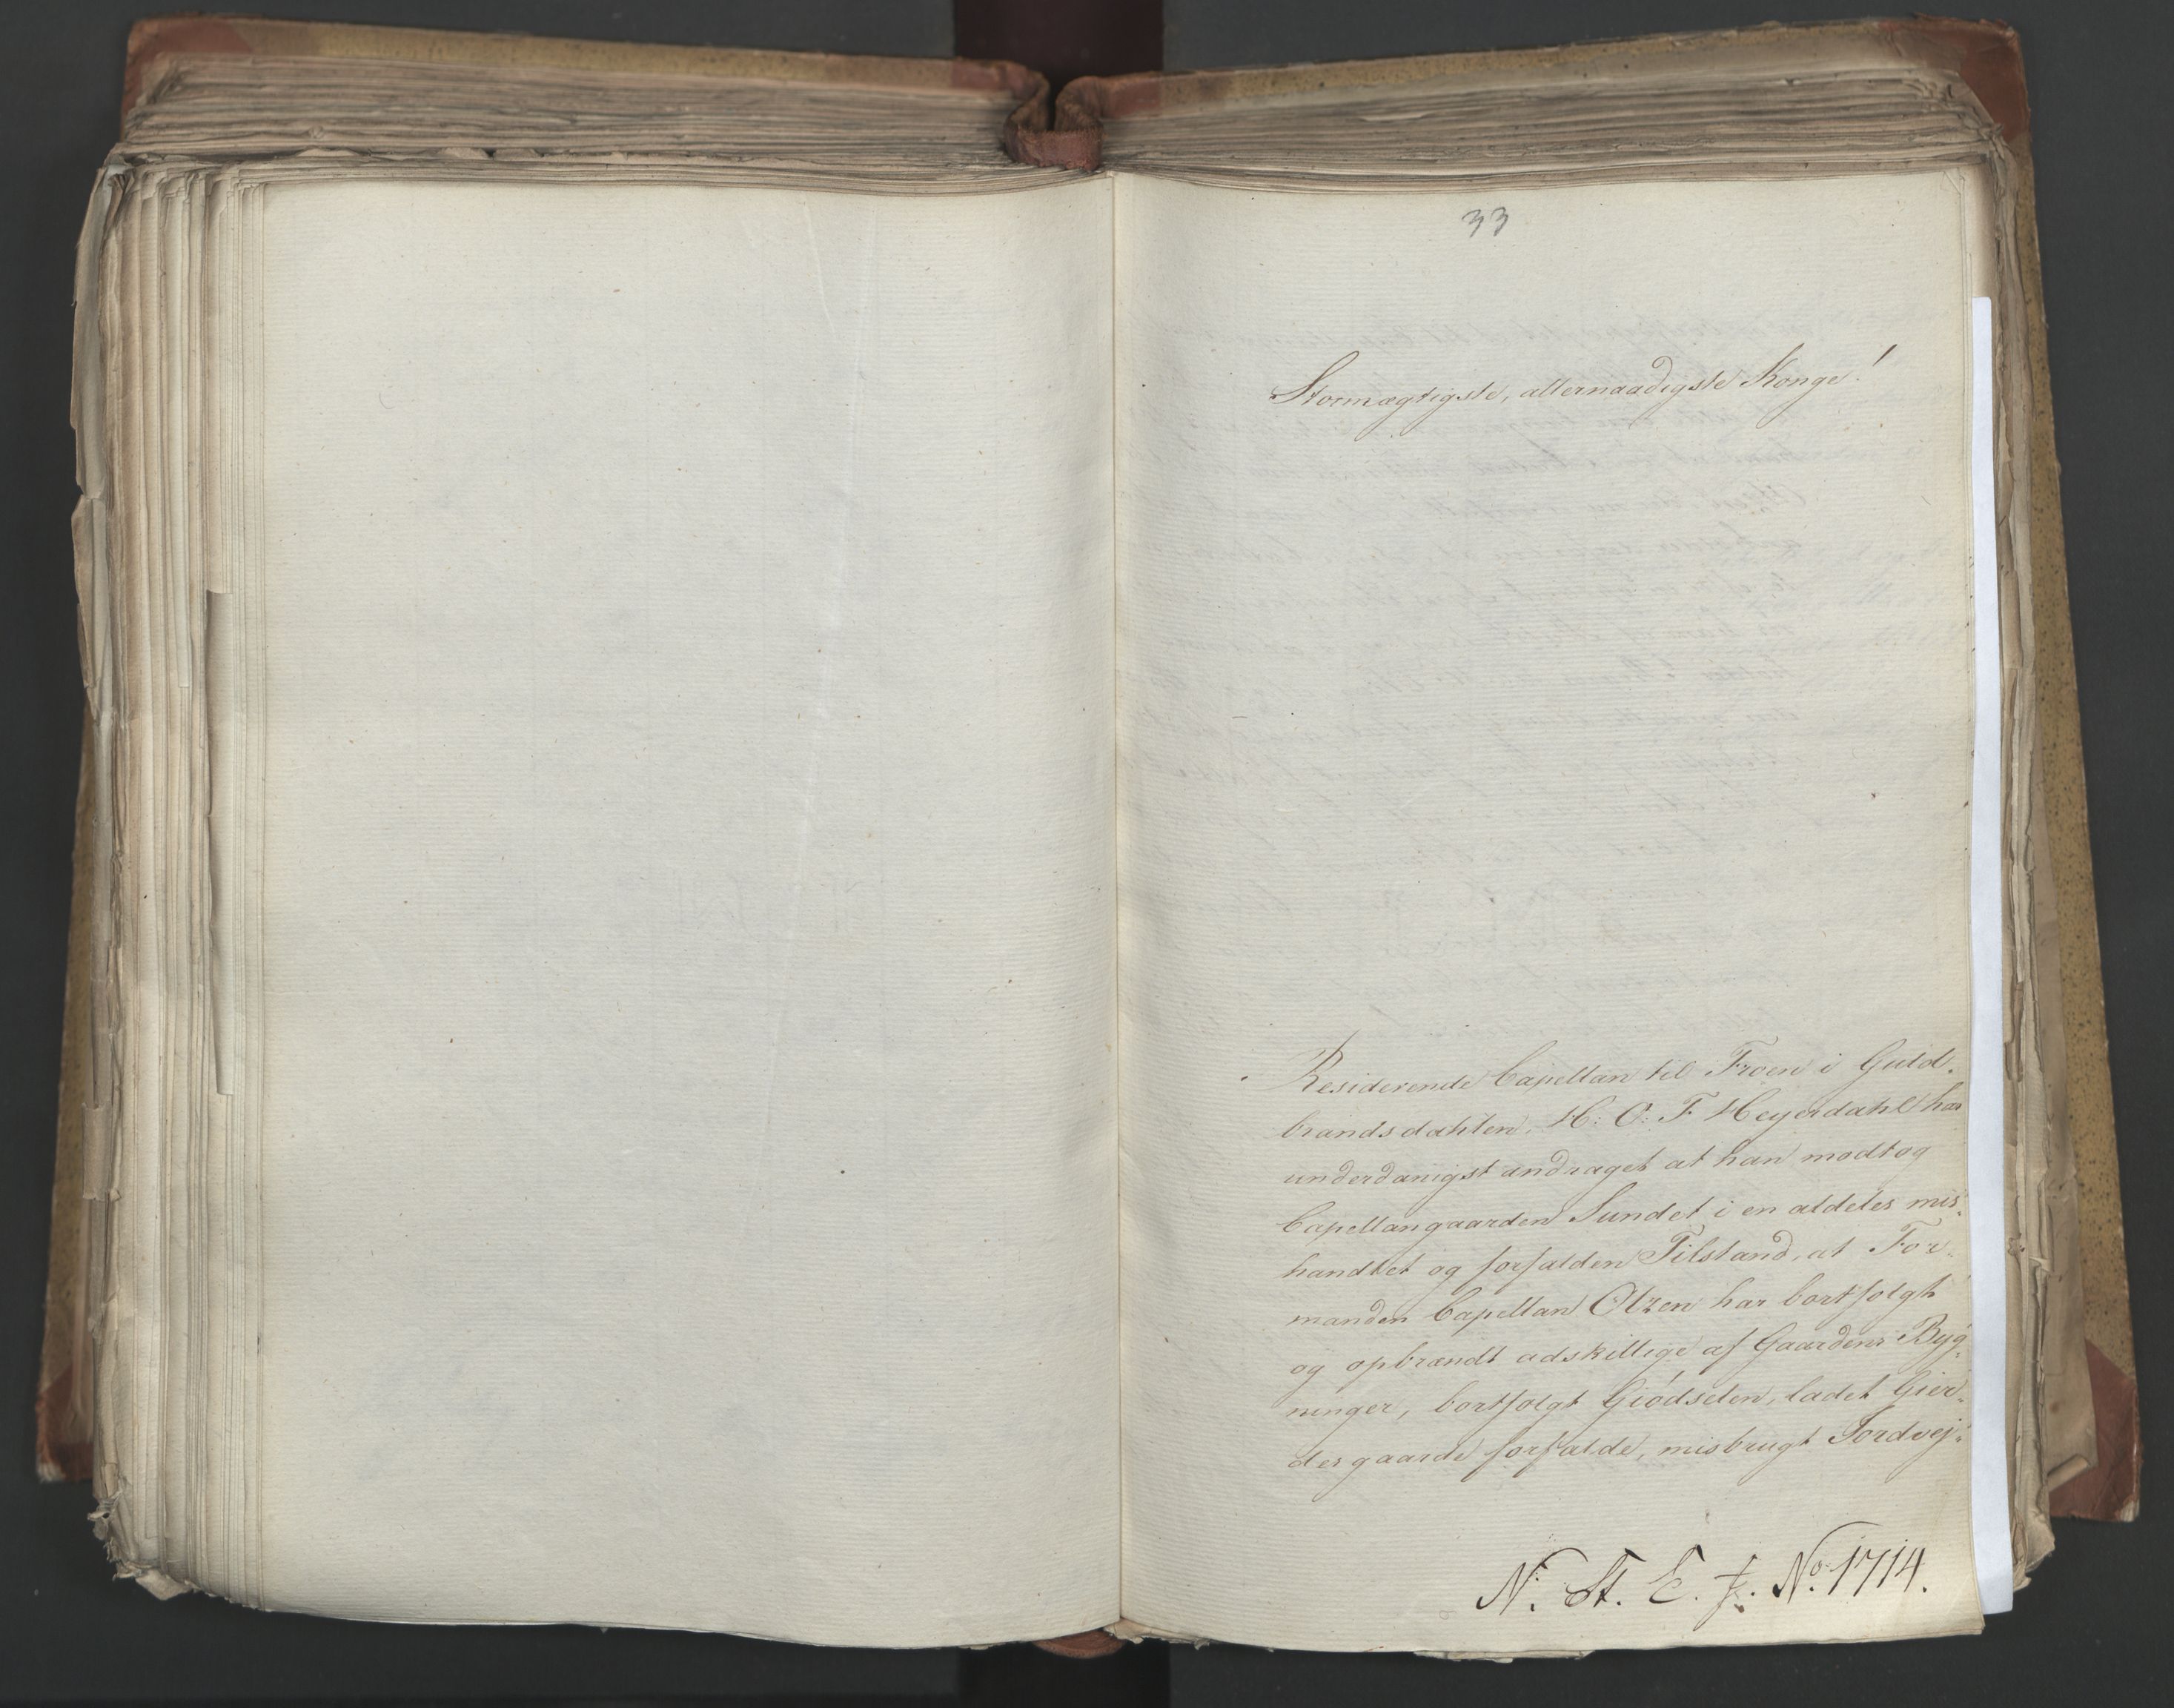 33
Stormægtigste, allernaadigste Konge!
Residerende Capellan til Froen i Guld-
brandsdahlen, H: O: F Heyerdahl har
underdanigst andraget at han modtog
Capellangaarden Sundet i en aldeles mis-
handlet og forfalden Tilstand, at For-
manden Capellan Olzen har bortsolgt
og opbrændt adskillige af Gaardens Byg-
ninger, bortsolgt Giødselen, ladet Gier-
desgaarde forfalde, misbrugt Jordvej-
N. St. E. f. No. 1714.